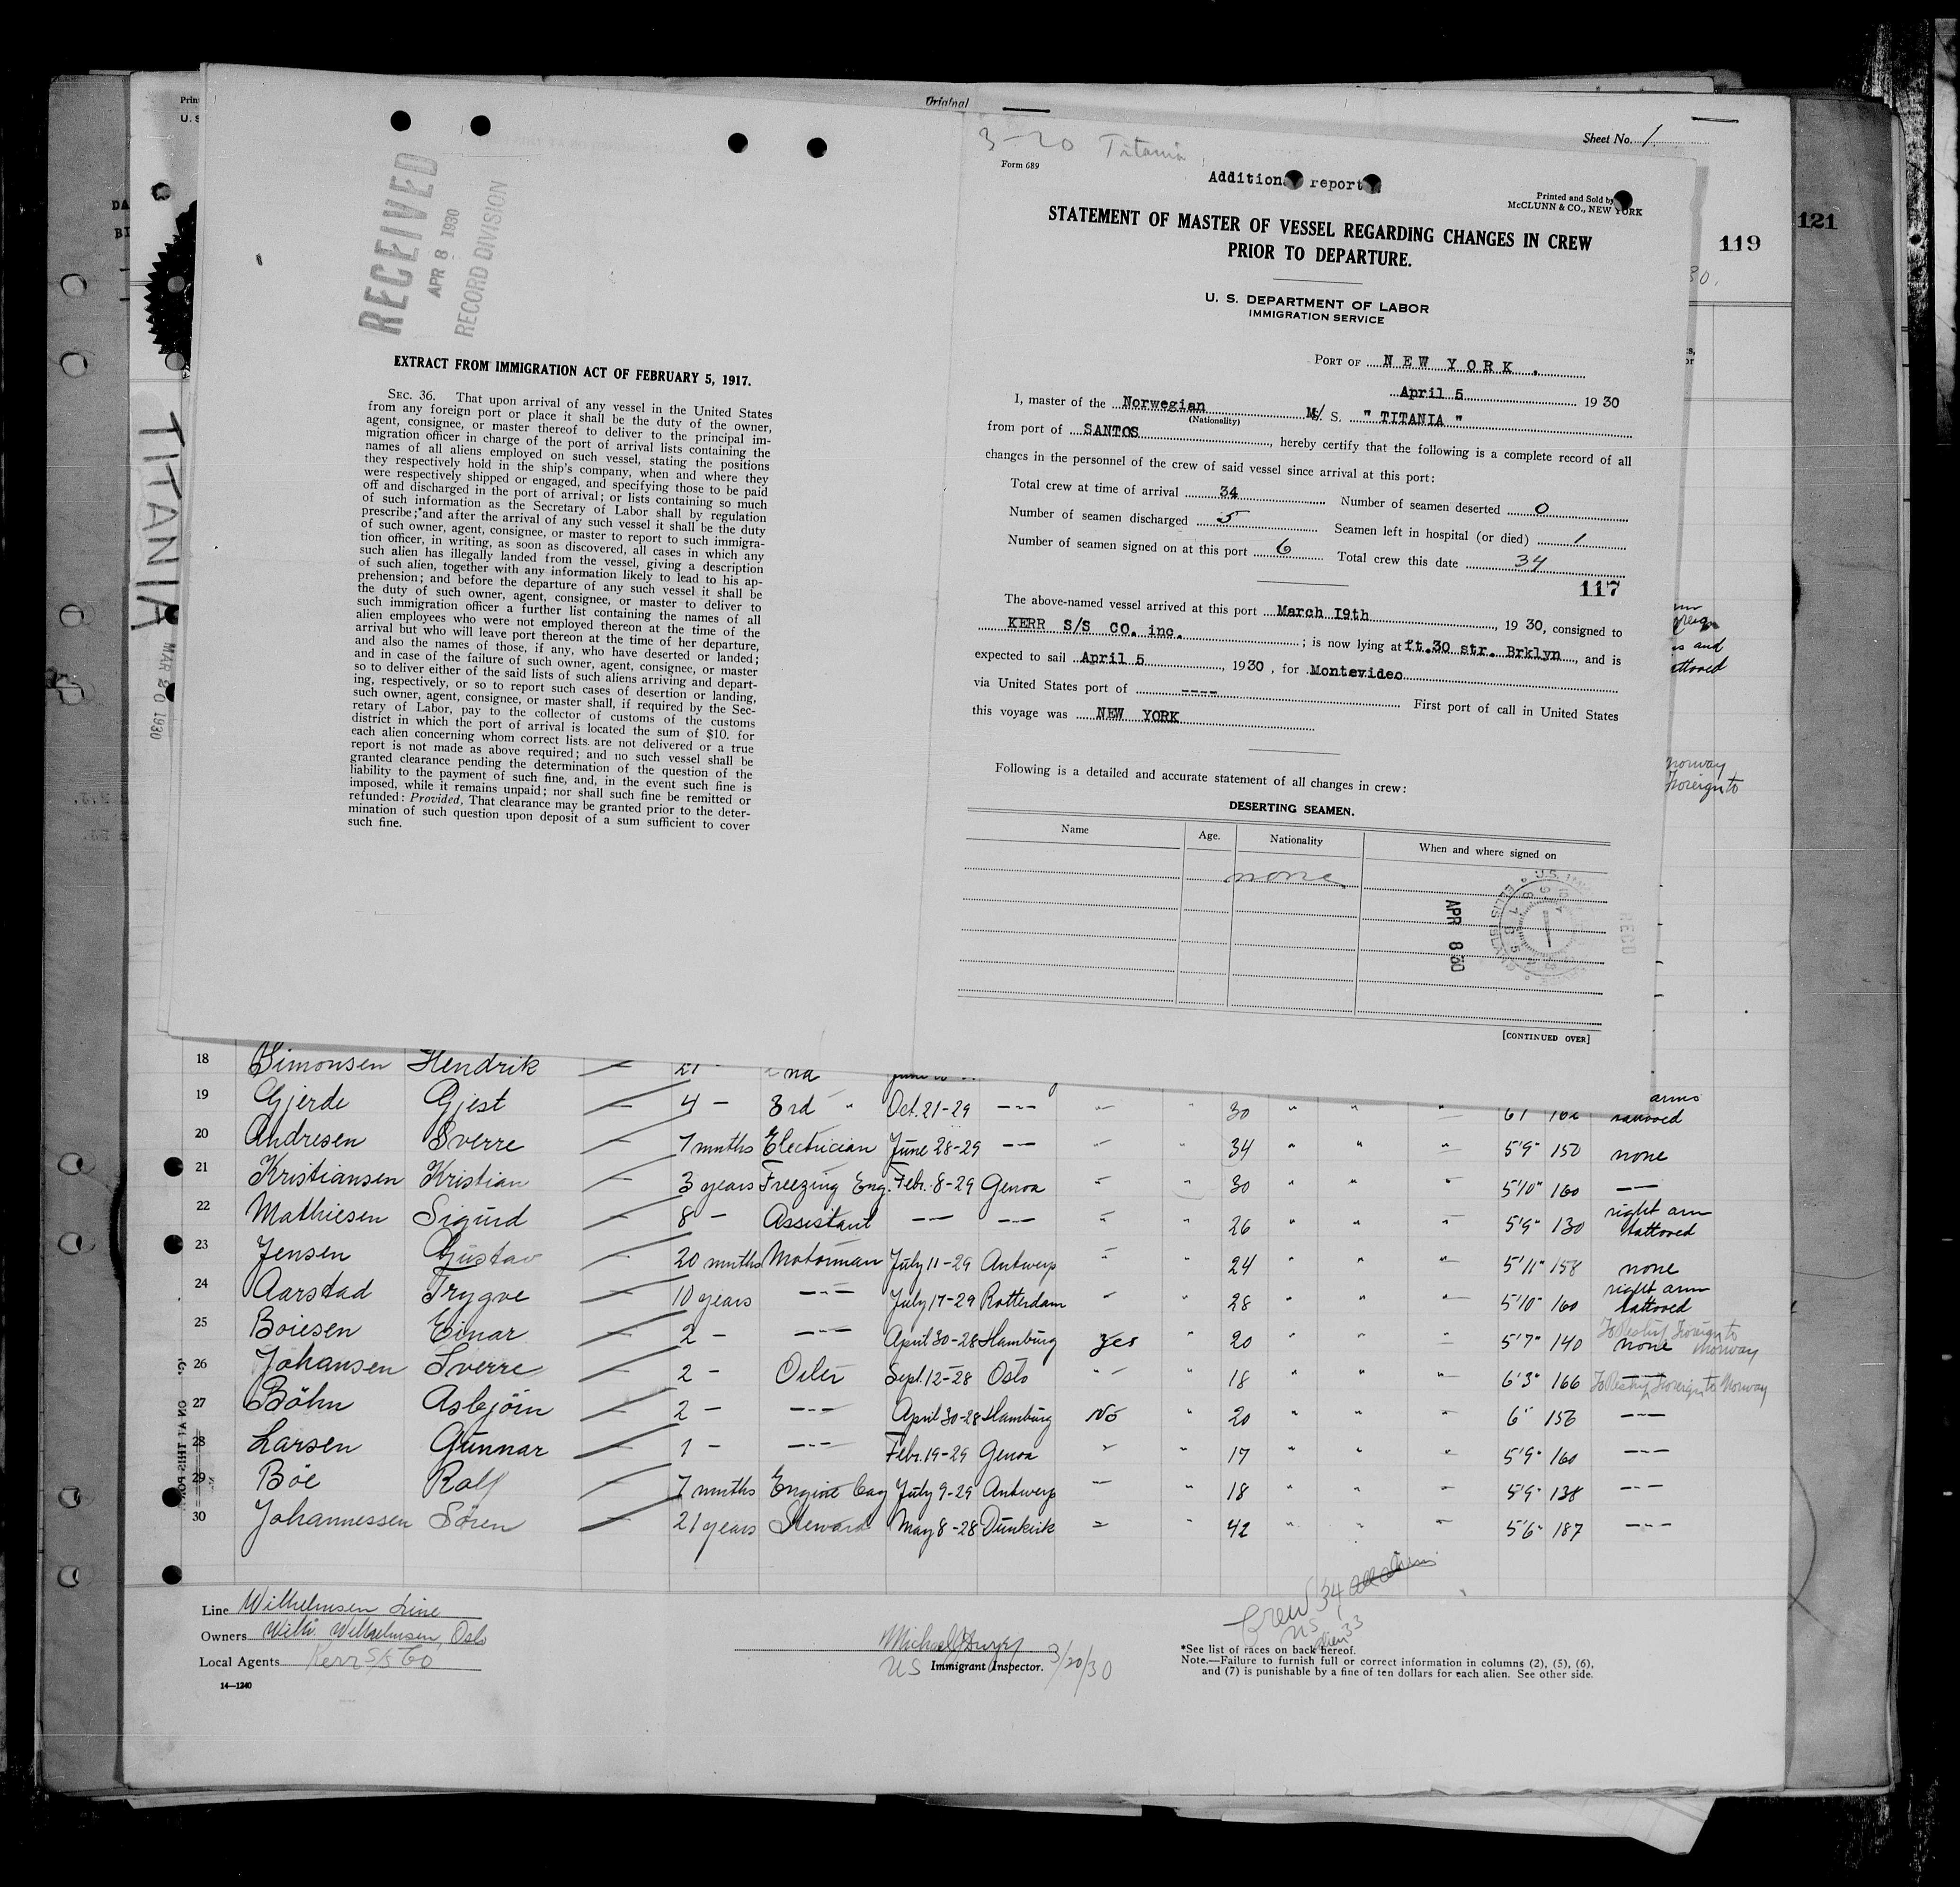 Original
Sheet No. 1
3-20 Titania
Form 689
Additional report
Printed and Sold by
McCLUNN & CO., NEW YORK
STATEMENT OF MASTER OF VESSEL REGARDING CHANGES IN CREW
PRIOR TO DEPARTURE.
U. S. DEPARTMENT OF LABOR
IMMIGRATION SERVICE
PORT OF NEW YORK.
April 5 1930
I, master of the Norwegian M/S. " TITANIA "
(Nationality)
from port of SANTOS, hereby certify that the following is a complete record of all
changes in the personnel of the crew of said vessel since arrival at this port:
Total crew at time of arrival 34 Number of seamen deserted 0
Number of seamen discharged 5 Seamen left in hospital (or died) 1
Number of seamen signed on at this port 6 Total crew this date 34
117
The above-named vessel arrived at this port March 19th, 1930, consigned to
KERR S/S CO. inc. ; is now lying at ft.30 str. Brklyn, and is
expected to sail April 5, 1930, for Montevideo
via United States port of ---- First port of call in United States
this voyage was NEW YORK
Following is a detailed and accurate statement of all changes in crew:
DESERTING SEAMEN.
Name Age. Nationality When and where signed on
none
APR 8 30
RECD
[CONTINUED OVER]
RECEIVED
APR 8 1930
RECORD DIVISION
EXTRACT FROM IMMIGRATION ACT OF FEBRUARY 5, 1917.
SEC. 36. That upon arrival of any vessel in the United States
from any foreign port or place it shall be the duty of the owner,
agent, consignee, or master thereof to deliver to the principal im-
migration officer in charge of the port of arrival lists containing the
names of all aliens employed on such vessel, stating the positions
they respectively hold in the ship's company, when and where they
were respectively shipped or engaged, and specifying those to be paid
off and discharged in the port of arrival; or lists containing so much
of such information as the Secretary of Labor shall by regulation
prescribe; and after the arrival of any such vessel it shall be the duty
of such owner, agent, consignee, or master to report to such immigra-
tion officer, in writing, as soon as discovered, all cases in which any
such alien has illegally landed from the vessel, giving a description
of such alien, together with any information likely to lead to his ap-
prehension; and before the departure of any such vessel it shall be
the duty of such owner, agent, consignee, or master to deliver to
such immigration officer a further list containing the names of all
alien employees who were not employed thereon at the time of the
arrival but who will leave port thereon at the time of her departure,
and also the names of those, if any, who have deserted or landed;
and in case of the failure of such owner, agent, consignee, or master
so to deliver either of the said lists of such aliens arriving and depart-
ing, respectively, or so to report such cases of desertion or landing,
such owner, agent, consignee, or master shall, if required by the Sec-
retary of Labor, pay to the collector of customs of the customs
district in which the port of arrival is located the sum of $10. for
each alien concerning whom correct lists are not delivered or a true
report is not made as above required; and no such vessel shall be
granted clearance pending the determination of the question of the
liability to the payment of such fine, and, in the event such fine is
imposed, while it remains unpaid; nor shall such fine be remitted or
refunded: Provided, That clearance may be granted prior to the deter-
mination of such question upon deposit of a sum sufficient to cover
such fine.
TITANIA
MAR 20 1930
119
121
18 Simonsen Hendrik
19 Gjerde Gjest 4 - 3rd " Oct. 21-29 -"- 30 arms tattooed
20 Andresen Sverre 7 mnths Electrician June 28-29 -"- 34 5'9" 150 none
21 Kristiansen Kristian 3 years Freezing Eng. Febr. 8-29 Genoa " 30 5'10" 160 -"-
22 Mathiesen Sigurd 8 - Assistant -"- -"- " 26 5'9" 130 right arm tattooed
23 Jensen Gustav 20 mnths Motorman July 11-29 Antwerp " 24 5'11" 158 none
24 Aarstad Trygve 10 years -"- July 17-29 Rotterdam " 28 5'10" 160 right arm tattooed
25 Boiesen Einar 2 - -"- April 30-28 Hamburg yes " 20 5'7" 140 none
26 Johansen Sverre 2 - Oiler Sept. 12-28 Oslo " 18 6'3" 166 Foreign to Norway
27 Böhn Asbjörn 2 - -"- April 30-28 Hamburg No " 20 6' 156 -"-
28 Larsen Gunnar 1 - -"- Febr. 19-29 Genoa " 17 5'9" 160 -"-
29 Böe Rolf 7 mnths Engine boy July 9-29 Antwerp " 18 5'9" 138 -"-
30 Johannessen Sören 21 years Steward May 8-28 Dunkirk " 42 5'6" 187 -"-
Line Wilhelmsen Line
Owners Wilh. Wilhelmsen, Oslo
Local Agents Kerr S/S Co
14-1240
US Immigrant Inspector. 3/20/30
Crew 34
US 1
Alien 33
*See list of races on back hereof.
Note.—Failure to furnish full or correct information in columns (2), (5), (6),
and (7) is punishable by a fine of ten dollars for each alien. See other side.